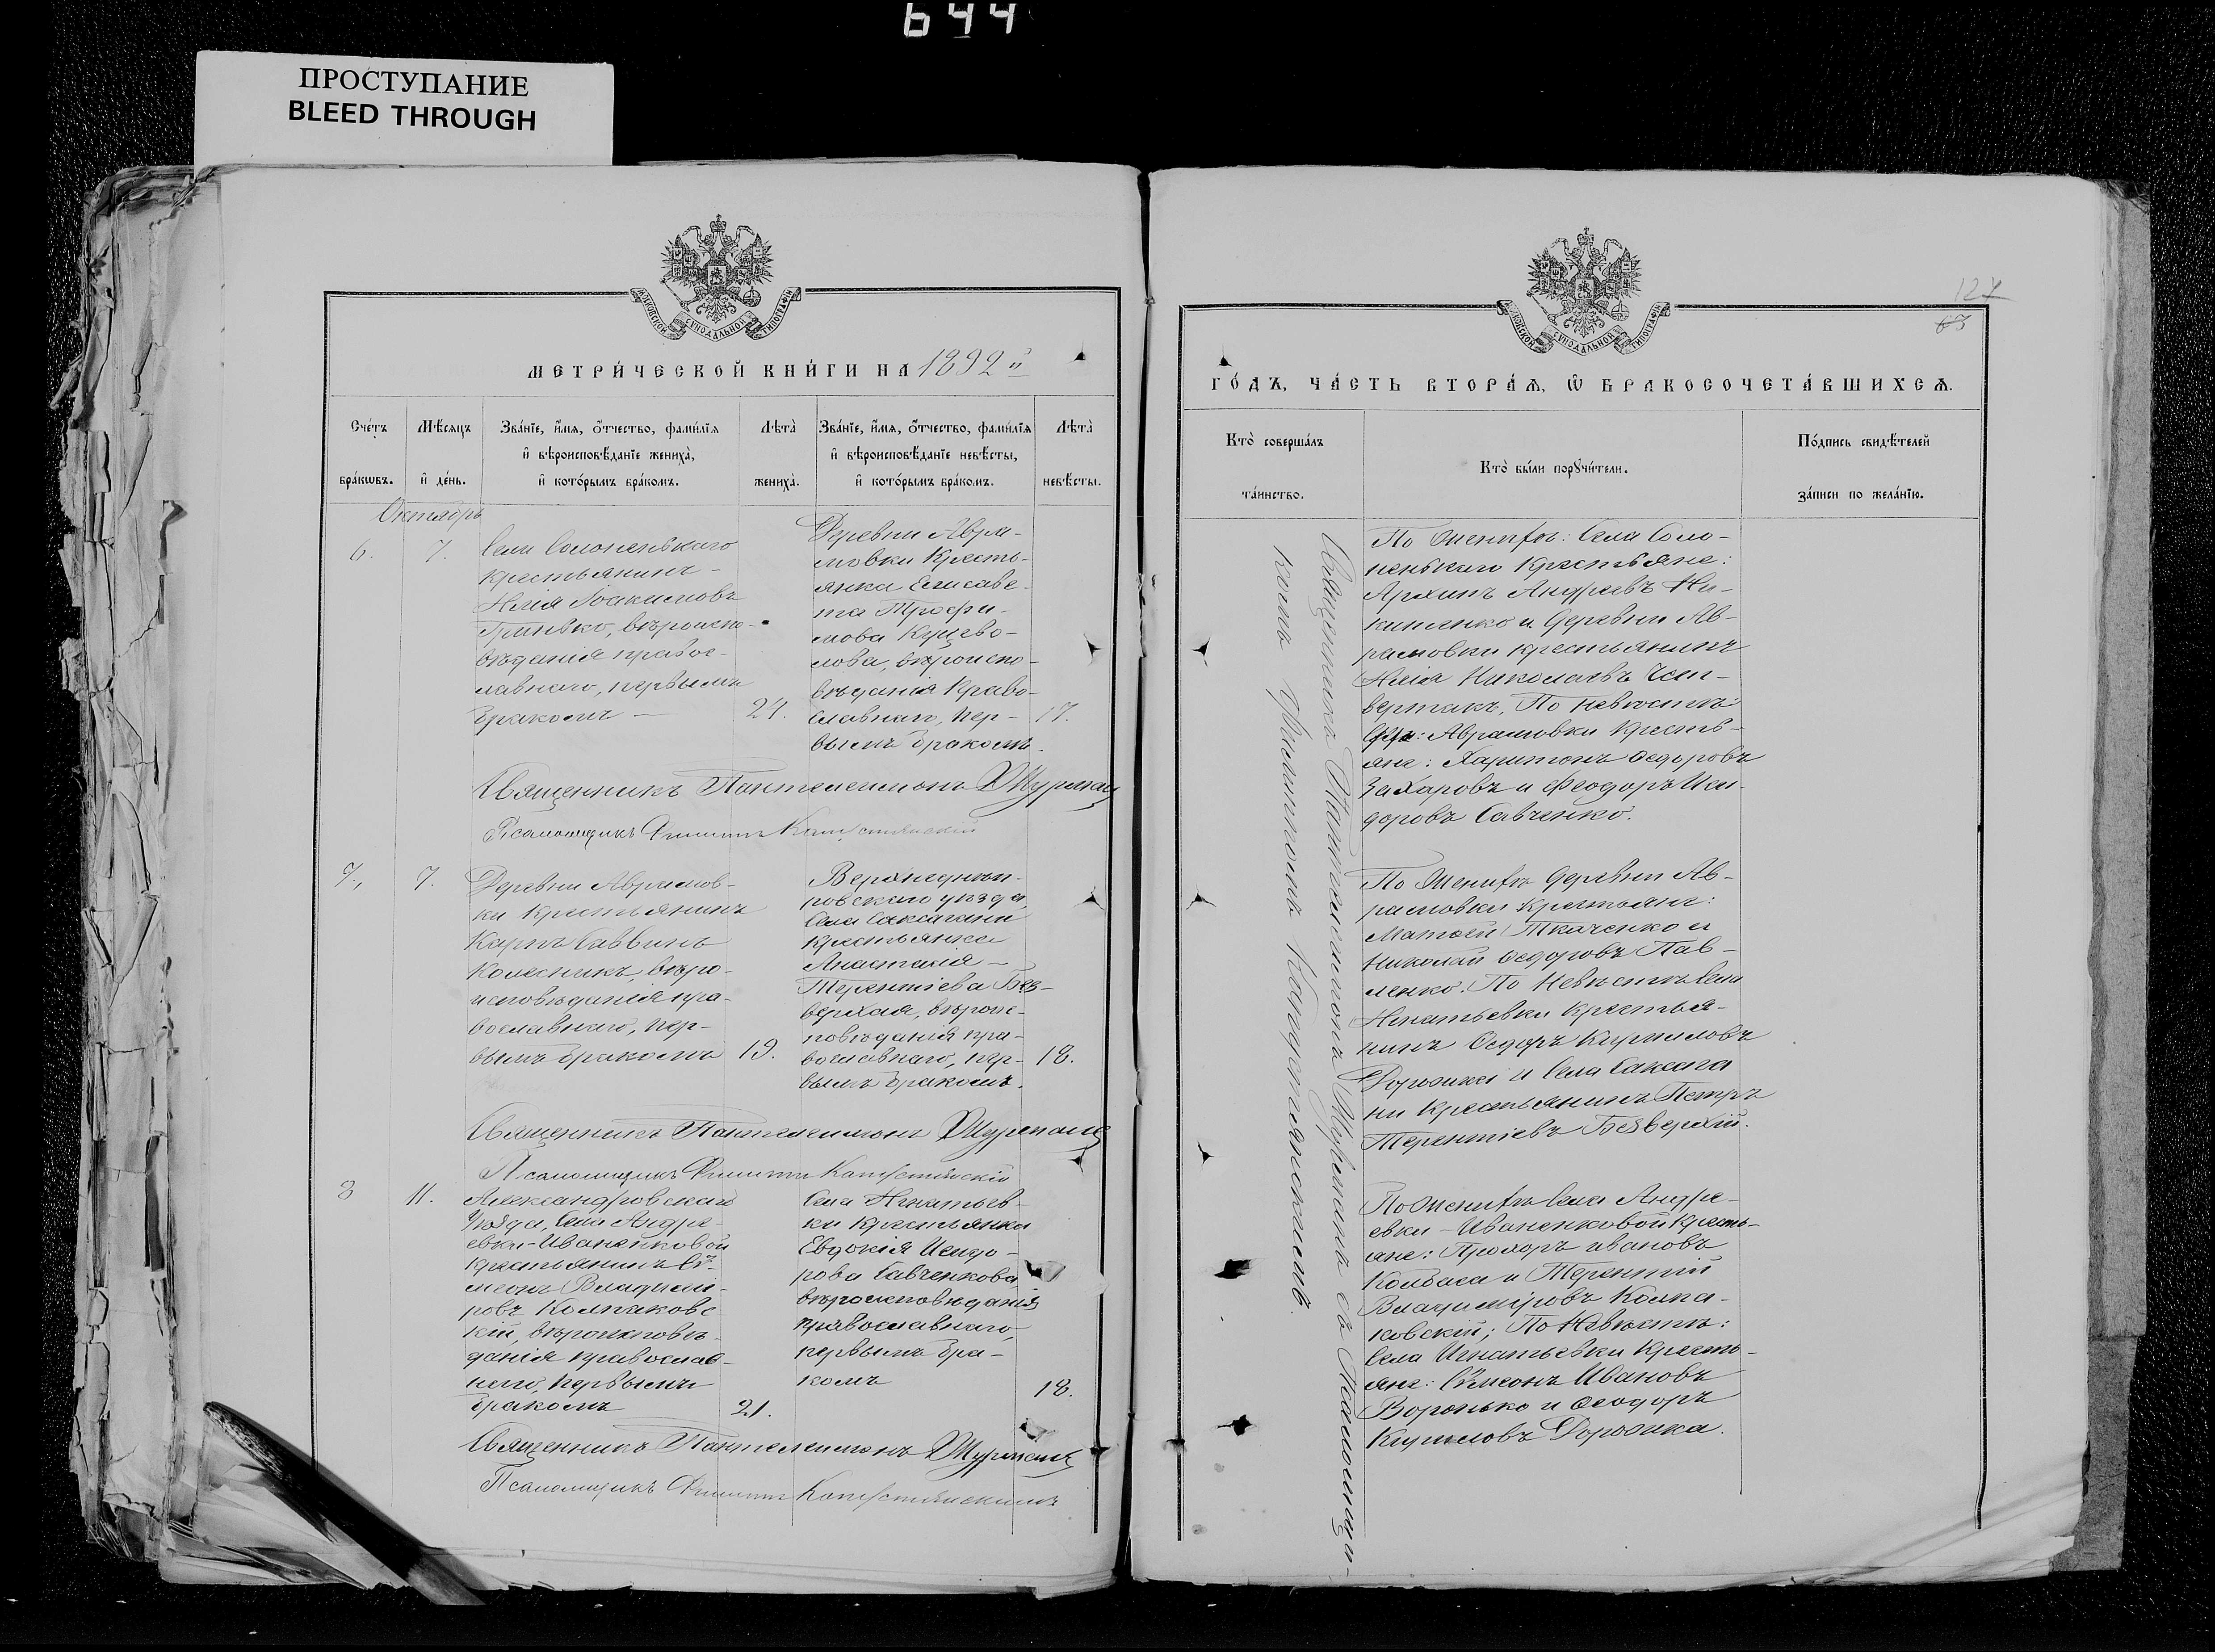 644
ПРОСТУПАНИЕ
BLEED THROUGH
МЕТРИ́ЧЕСКОЙ КНИ́ГИ НА 1892 й
Сче́тъ бра́кѡвъ.
Мѣ́сяцъ и҆ де́нь.
Зва́нїе, и҆́мѧ, ѻ҆́тчество, фами́лїѧ
и҆ вѣроисповѣ́данїе жениха̀,
и҆ кото́рымъ бра́комъ.
Лѣта̀ жениха̀.
Зва́нїе, и҆́мѧ, ѻ҆́тчество, фами́лїѧ
и҆ вѣроисповѣ́данїе невѣ́сты,
и҆ кото́рымъ бра́комъ.
Лѣта̀ невѣ́сты.
Октябрь
6.
7.
Села Солоненькаго
крестьянинъ
Илія Іоакимовъ
Гринько, вѣроиспо-
вѣданія правос-
лавнаго, первымъ
бракомъ —
24.
Деревни Авра-
мовки Кресть-
янка Елисаве-
та Трофи-
мова Куцево-
лова, вѣроиспо-
вѣданія Право-
славнаго, пер-
вымъ бракомъ.
17.
Священникъ Пантелеимонъ
Псаломщикъ Филиппъ
7.,
7.
Деревни Аврамов-
ки Крестьянинъ
Карпъ Саввинъ
Колесникъ, вѣро-
исповѣданія пра-
вославнаго, пер-
вымъ бракомъ
19.
Верхнеднѣп-
ровскаго уѣзда,
Села Саксагани
крестьянка
Анастасія —
Терентіева Без-
верхая, вѣроис-
повѣданія пра-
вославнаго, пер-
вымъ бракомъ.
18.
Священникъ Пантелеимонъ
Псаломщикъ Филиппъ
8
11.
Александровскаго
Уѣзда, Села Андре-
евки-Иваненковой
крестьянинъ Сѵ-
меонъ Владимі-
ровъ Колпаковс
кій, вѣроисповѣ-
данія православ-
наго, первымъ
бракомъ
21.
Села Игнатьев-
ки крестьянка
Евдокія Исидо-
рова Савченкова,
вѣроисповѣданія
православнаго,
первымъ бра-
комъ
18.
Священникъ Пантелеимонъ
Псаломщикъ Филиппъ
127
63
ГО́ДЪ, ЧА́СТЬ ВТОРА́Ѧ, Ѽ БРАКОСОЧЕТА́ВШИХСѦ.
Кто̀ соверша́лъ
та́инство.
Кто̀ бы́ли порꙋчи́тели.
По́дпись свидѣ́телей
за́писи по жела́нїю.
Священникъ Пантелеимонъ съ Псаломщи-
комъ Филиппомъ
По Женихѣ: Села Соло-
ненькаго Крестьяне:
Архипъ Андреевъ Ни-
кипенко и Деревни Ав-
рамовки крестьянинъ
Илія Николаевъ Чет-
вертакъ, По невѣстѣ:
Аврамовки кресть-
яне: Харитонъ Ѳедоровъ
Захаровъ и Феодоръ Иси-
доровъ Савченко.
По Женихѣ Деревни Ав-
рамовки Крестьяне:
Матѳей Ткаченко и
Николай Ѳедоровъ Пав-
ленко. По Невѣстѣ Села
Игнатьевки Крестья-
нинъ Ѳедоръ Кирилловъ
Дорожка и Села Саксага
ни крестьянинъ Петръ
Терентіевъ Безверхій.
По Женихѣ Села Андре-
евки-Иваненковой Кресть-
яне: Прохоръ Ивановъ
Колбаса и Терентій
Владиміровъ Колпа-
ковскій; По Невѣстѣ:
Села Игнатьевки Кресть-
яне: Сѵмеонъ Ивановъ
Воронько и Ѳеодоръ
Кириловъ Дорожка.